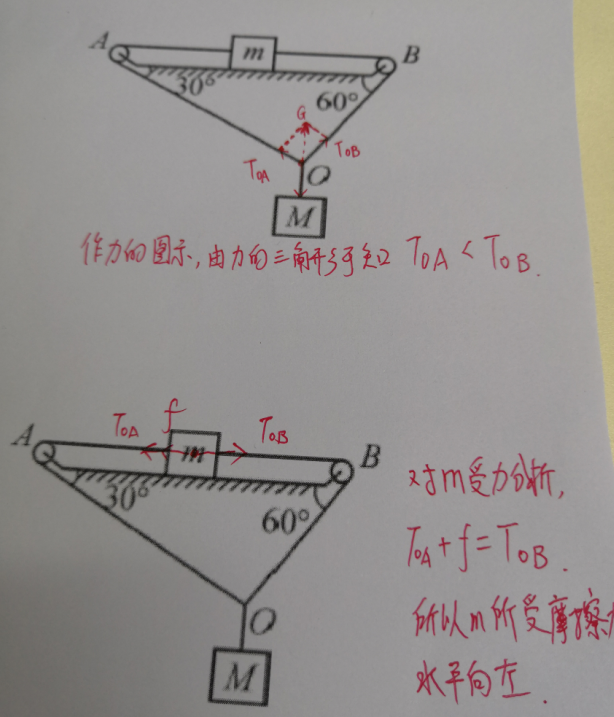 A
m
B
30°
60°
G
T_OA
T_OB
O
M
作力的图示，由力的三角形可知 T_OA < T_OB.
T_OA
f
T_OB
A
m
B
30°
60°
O
M
对m受力分析，
T_OA + f = T_OB.
所以m所受摩擦力
水平向左.